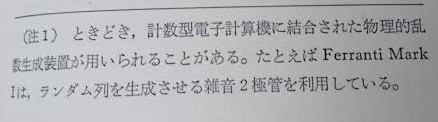 (注1) ときどき，計数型電子計算機に結合された物理的乱
数生成装置が用いられることがある。たとえば Ferranti Mark
Iは，ランダム列を生成させる雑音2極管を利用している。